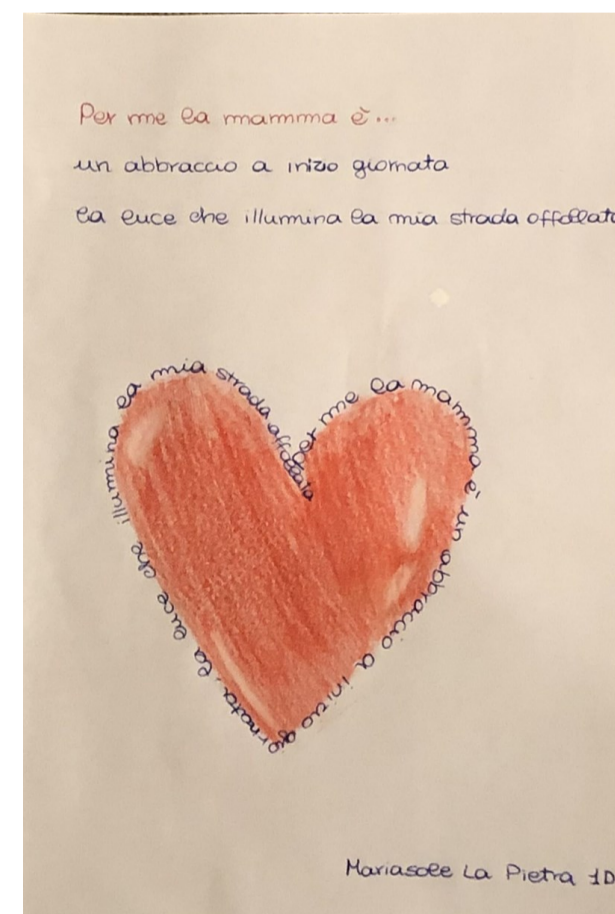 Per me la mamma è...
un abbraccio a inizo giornata
la luce che illumina la mia strada affollata
per me la mamma è un abbraccio a inizio giornata, la luce che illumina la mia strada affollata
Mariasole La Pietra 1D